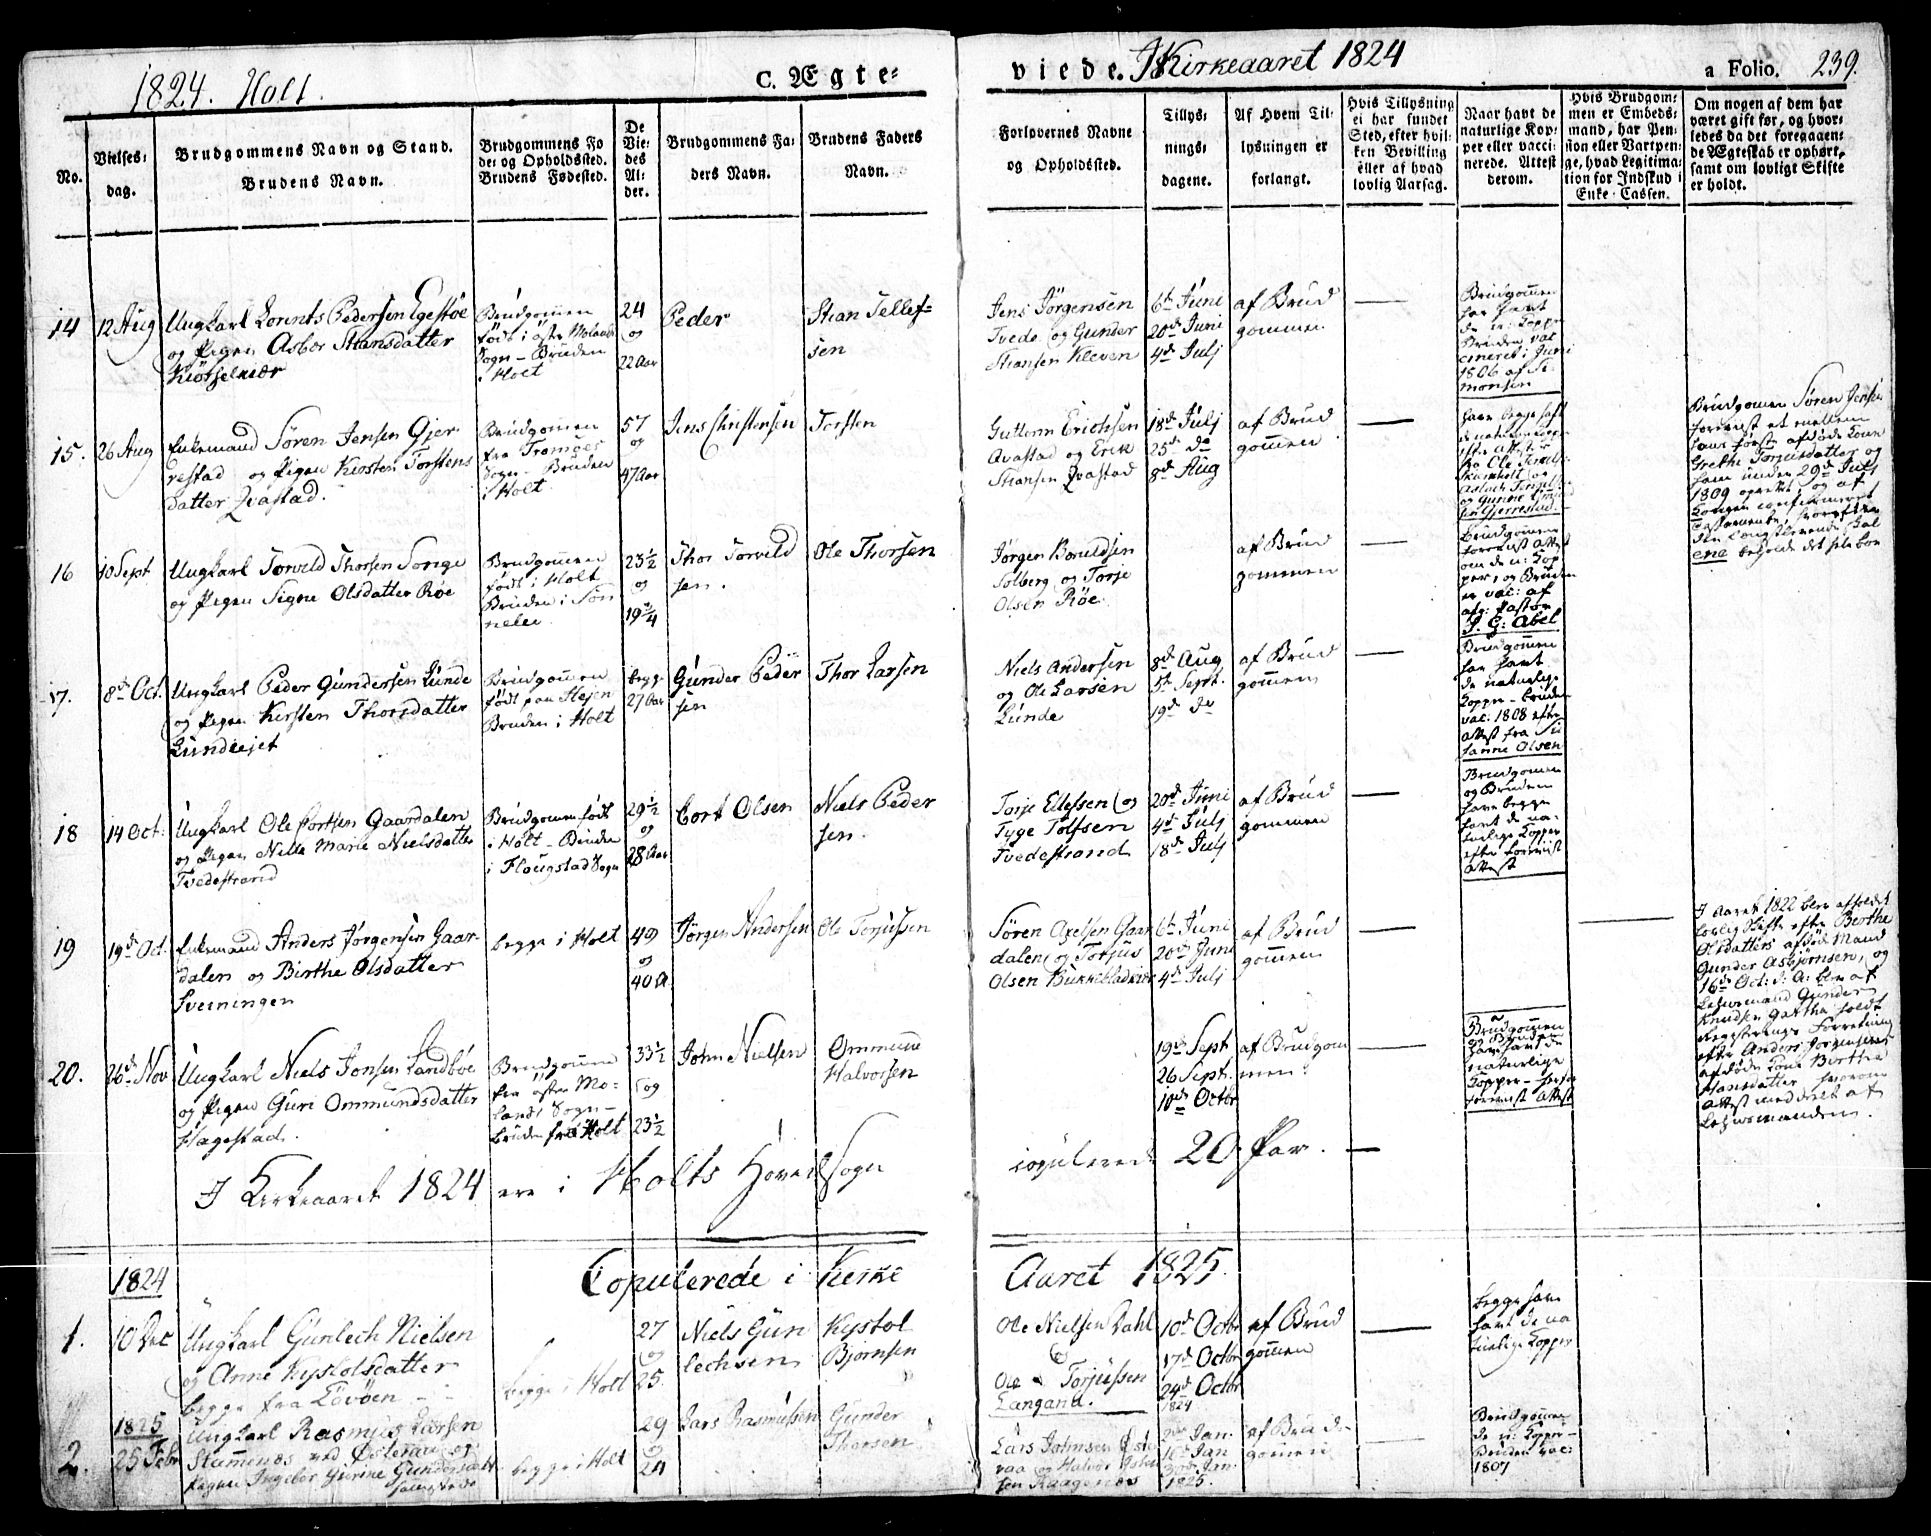 1824. Holt.
C. Ægte=
viede. I Kirkeaaret 1824
a Folio. 239.
No.
Vielses=
dag.
Brudgommens Navn og Stand.
Brudens Navn.
Brudgommens Fø
de= og Opholdssted.
Brudens Fødested.
De
Vie=
des
Al=
der.
Brudgommens Fa=
ders Navn.
Brudens Faders
Navn.
Forlovernes Navne
og Opholdssted.
Tillys=
nings=
dagene.
Af Hvem Til=
lysningen er
forlangt.
Hvis Tillysning
ei har fundet
Sted, efter hvil=
ken Bevilling
eller af hvad
lovlig Aarsag.
Naar havt de
naturlige Kop=
per eller vacci=
nerede. Attest
derom.
Hvis Brudgom=
men er Embeds=
mand, har Pen=
sion eller Vartpen=
ge, hvad Legitima=
tion for Indskud i
Enke=Cassen.
Om nogen af dem har
været gift før, og hvor=
ledes da det foregaaen=
de Ægteskab er ophørt,
samt om lovligt Skifte
er holdt.
14 12 Aug
Ungkarl Lorents Pedersen Egestöe
og Pigen Asbor Stiansdatter
Kiörselkiær
Brudgommen
födt i öster Molands
Sogn - Bruden
i Holt
24
og
22 Aar
Peder
Stian Tellef=
sen
Jens Jörgensen
Tvede og Gunder
Stiansen Kleven
6te Juni
20de Juni
4de Julj
af Brud
gommen
Brudgommen
har havt
de n: Kopper
Bruden vac
cineret i Juni
1806 af Si
monsen
15. 26 Aug
Enkemand Sören Jensen Gjer
restad og Pigen Kirsten Torstens
datter Qvastad.
Brudgommen
fra Tromöes
Sogn - Bruden
i Holt.
57
og
47 Aar
Jens Christensen
Torsten
Guttorm Erichsen
Qvastad og Erik
Stiansen Qvastad
18de Julj
25de do
8de Aug
af Brud
gommen
have begge havt
de naturlige Kop=
Brudgomen Sören Jensen
foreviist et mellem
ham først afdøde Kone
Grethe Tønnisdatter og
ham under 29de Julj
1809 oprettet og af
Kongen confirmeret
Testamente, hvorefter
den Længstlevende Gal
ene beholde det hele boe
16 10 Sept
Ungkarl Torvild Thorsen Songe
og Pigen Signe Olsdatter Röe
Brudgommen
födt i Holt
Bruden i Sön
nelev
23½
og
19¾
Thor Torvild
sen.
Ole Thorsen
Jörgen Boruldsen
Solberg og Torje
Olsen Röe.
af Brud
gommen
Brudgommen
foreviist Attest
om de n: Kop
per, og Bruden
er vac: af
afg: Pastor
P. G: Abel
17. 8de Oct.
Ungkarl Peder Gundersen Lunde
og Pigen Kirsten Thorsdatter
Lundeejet
Brudgommen
födt paa Hejen
Bruden i Holt
begge
27 Aar
Gunder Peder
sen
Thor Larsen
Niels Andersen
og Ole Larsen
Lunde
8de Aug
5te Sept.
19de do
af Brud
gommen
Brudgommen
har havt
de naturlige
Kopper - bruden
vac: 1808 efter
Attest fra Su
sanne Olsen
18 14 Oct:
Ungkarl Ole Cortsen Gaardalen
og Pigen Nille Marie Nielsdatter
Tvedestrand
Brudgommen født
i Holt - Bruden
i Flougstad Sogn
29½
og
28 Aar
Cort Olsen
Niels Peder
sen.
Torje Ellefsen og
Tyge Tolfsen
Tvedestrand
20de Juni
4de Julj
18de Julj
af Brud
gommen
Brudgommen
og Bruden
have begge
havt de na=
turlige Kopper
efter foreviist
Attest
19 19de Oct.
Enkemand Anders Jörgensen Gaar
dalen og Birthe Olsdatter
Sveiningen
begge i Holt
49
og
40 A
Jörgen Andersen
Ole Torjussen
Sören Axelsen Gaar
dalen og Torjus
Olsen Bukkebladkier
6te Juni
20de Juni
4de Julj
af Brud
gommen
I Aaret 1822 blev afholdet
lovlig Skifte efter Birthe
Olsdatters afdöde Mand
Gunder Asbjørnsen, og
16de Oct: d: A: blev af
Lehnsmand Gunder
Knudsen Gartha holdt
Registrerings Forretning
efter Anders Jörgensens
afdöde Kone Birthe
Hansdatter, hvorom
Attest meddeelt af
Lehnsmanden.
20. 26de Nov
Ungkarl Niels Jonsen Sandböe
og Pigen Guri Ommundsdatter
Hagestad.
Brudgommen
fra öster Mo=
lands Sogn -
bruden fra Holt
33½
og
23½
John Nielsen
Ommund
Halvorsen
19de Sept
26 Sept.
10de Octbr
af Brudgom
men
Brudgommen
og Bruden
have havt de
naturlige
Kopper - herfor
foreviist Attest
I Kirkeaaret 1824 ere i Holts Hoved Sogn
copulerede 20 Par.
Copulerede i Kirke
Aaret 1825.
1824
1. 10 Dec
Ungkarl Gunlech Nielsen
og Anne Kystolsdatter
begge fra Lövöen
begge i Holt
27
og
25.
Niels Gun
lechsen
Kystol
Bjornsen
Ole Nielsen Dahl
og
Ole Torjussen
Langand.
10de Octbr
17de Octbr
24de Octbr
1824
af Brud
gommen
begge have
havt de na
turlige Kopper
1825
2. 25 Febr
Ungkarl Rasmus Larsen
Stammenes ved Österaae og
Pigen Ingebor Serine Gundersdatter
begge i Holt
29
og
24
Lars Rasmussen
Gunder
Thorsen
Lars Johnsen Öste
raa og Halvor
sen Kragenes
2den Jan.
16de Jan
30de Jan.
1825.
af Brud=
gommen
Brudgommen
de n: Kopper -
Bruden vac:
1807